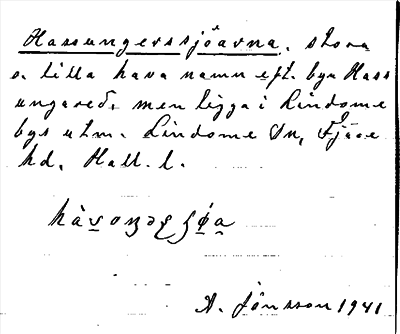 Hassungerssjöarna, stora
o. lilla hava namn eft. byn Hass
ungared, men ligga i Lindome
bys utm. Lindome sn, Fjäre
hd, Hall. l.
A. Jönsson 1941